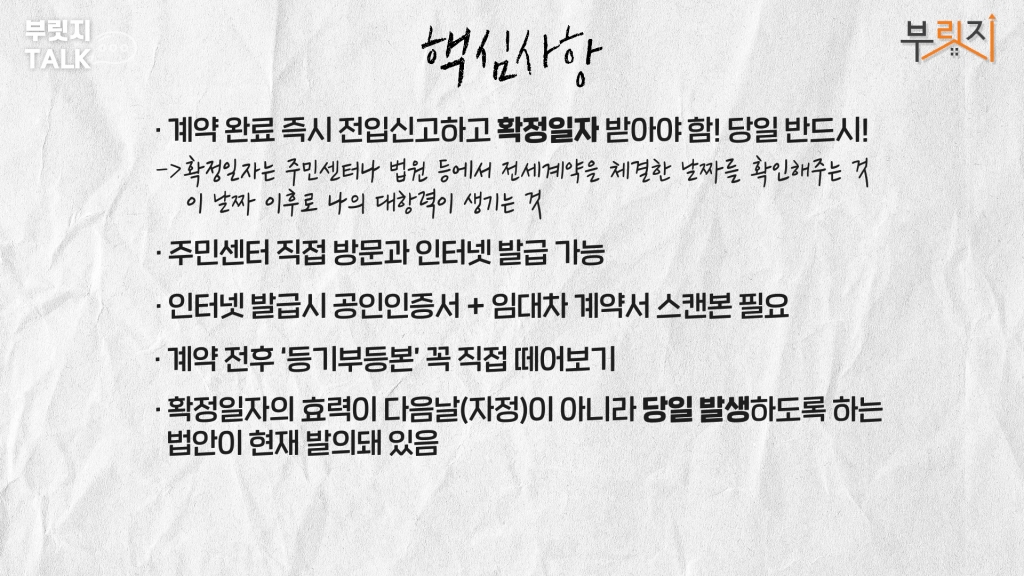 부릿지
TALK
부릿지
핵심사항
· 계약 완료 즉시 전입신고하고 확정일자 받아야 함! 당일 반드시!
->확정일자는 주민센터나 법원 등에서 전세계약을 체결한 날짜를 확인해주는 것
이 날짜 이후로 나의 대항력이 생기는 것
· 주민센터 직접 방문과 인터넷 발급 가능
· 인터넷 발급시 공인인증서 + 임대차 계약서 스캔본 필요
· 계약 전후 '등기부등본' 꼭 직접 떼어보기
· 확정일자의 효력이 다음날(자정)이 아니라 당일 발생하도록 하는
법안이 현재 발의돼 있음